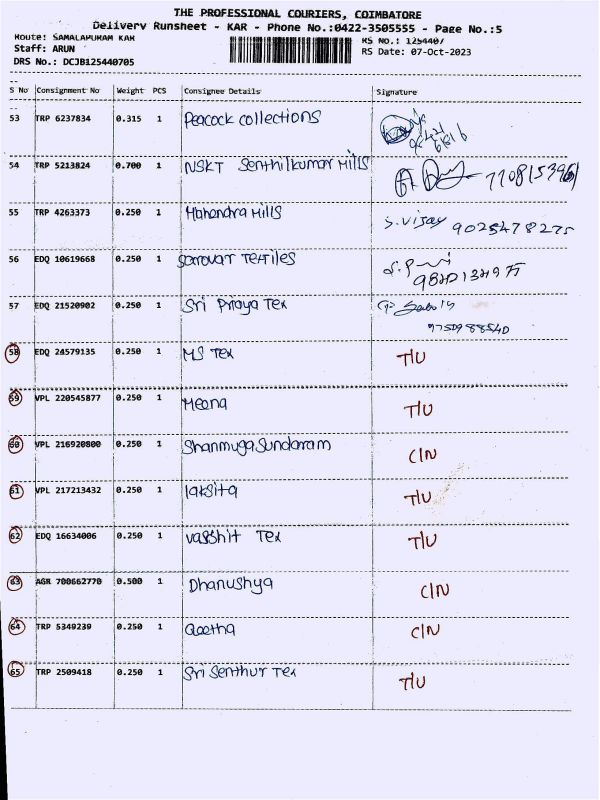 THE PROFESSIONAL COURIERS, COIMBATORE
Delivery Runsheet - KAR - Phone No.:0422-3505555 - Page No.:5
Route: SAMALAPURAM KAR
RS No.: 1254407
Staff: ARUN
RS Date: 07-Oct-2023
DRS No.: DCJB125440705
S No Consignment No Weight PCS Consignee Details Signature
53 TRP 6237834 0.315 1 Peacock collections
54 TRP 5213824 0.700 1 NSKT Senthilkumar Mills
55 TRP 4263373 0.250 1 Mahendra Mills S. Vijay 9025478275
56 EDQ 10619668 0.250 1 Sarovar Textiles
57 EDQ 21520902 0.250 1 Sri Priya Tex
9750988540
58 EDQ 24579135 0.250 1 MS Tex T/U
59 VPL 220545877 0.250 1 Meena T/U
60 VPL 216920800 0.250 1 Shanmuga Sundaram C/N
61 VPL 217213432 0.250 1 laksita T/U
62 EDQ 16634006 0.250 1 Tex T/U
63 AGR 700662770 0.500 1 Dhanushya C/N
64 TRP 5349239 0.250 1 Geetha C/N
65 TRP 2509418 0.250 1 Sri Senthur Tex T/U